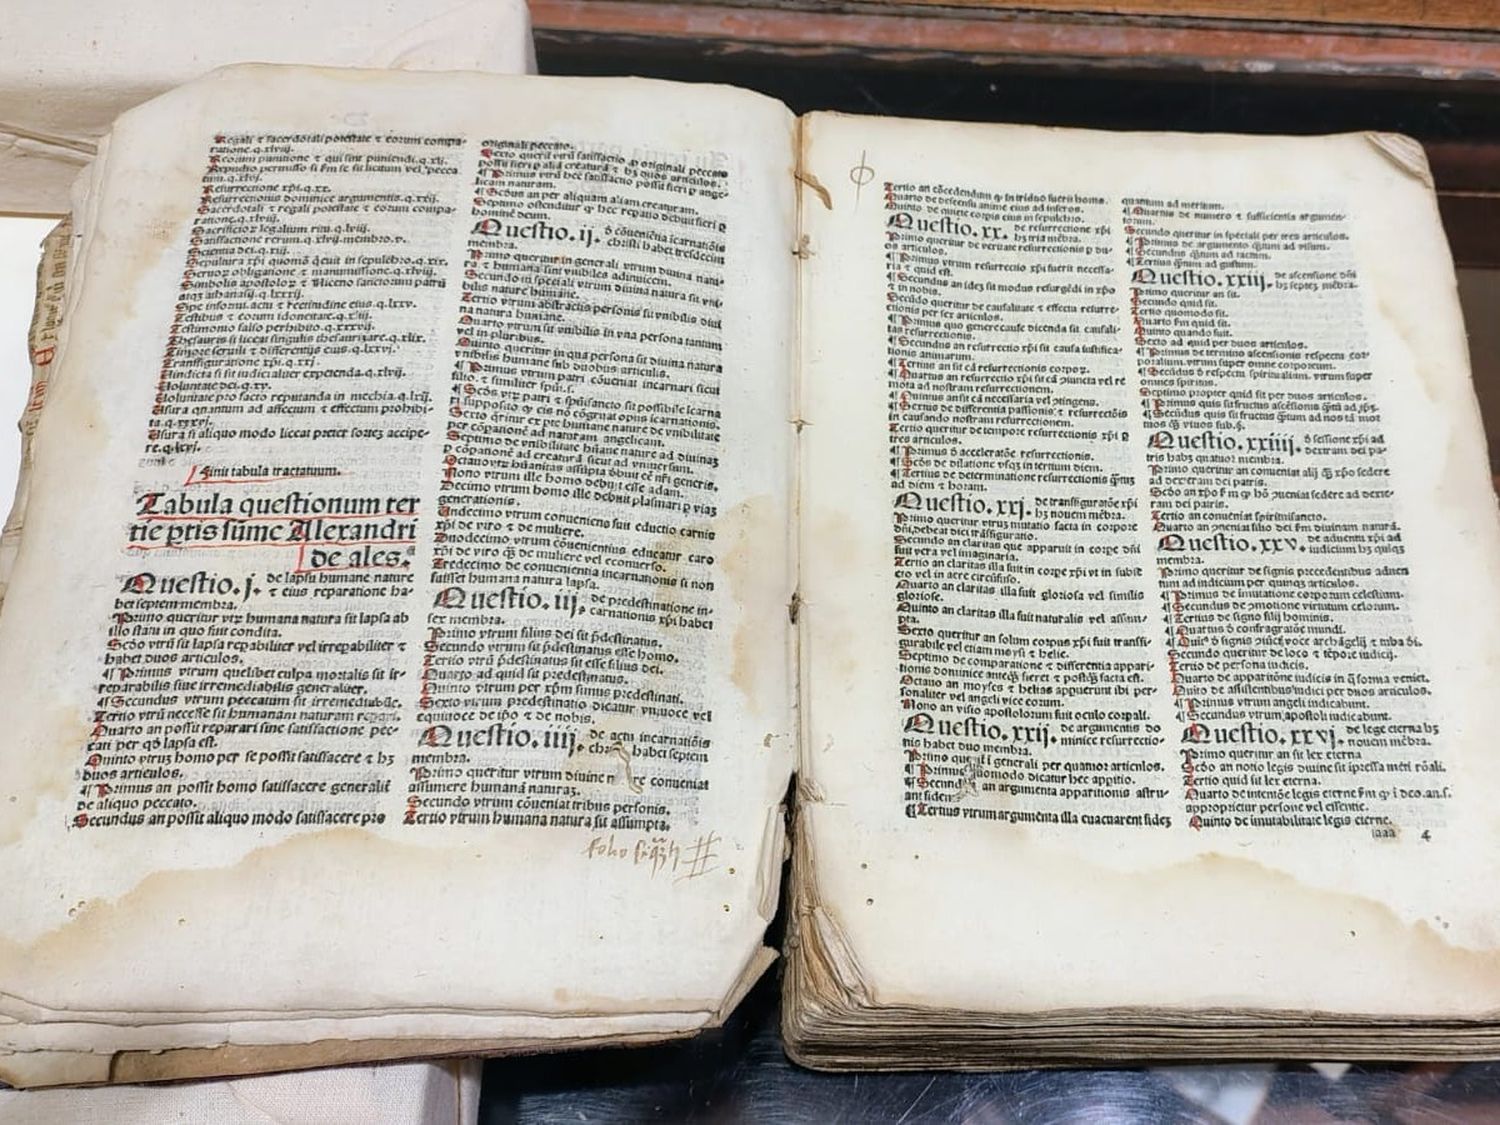 Regali ⁊ sacerdotali potestate ⁊ eorum compa-
ratione.q.xlviij.
Reorum punitione ⁊ qui sint puniendi.q.xlj.
Repudio permisso si
tum.q.xlvj.
Resurrectione xp̄i.q.xx.
Resurrectionis dominice argumentis.q.xxij.
Sacerdotali ⁊ regali potestate ⁊ eorum compa-
ratione.q.xlviij.
Sacrificioꝝ legalium ritu.q.lviij.
Satisfactione rerum.q.xlvij.membro.v.
Scientia dei.q.xij.
Sepultura xp̄i in sepulchro.q.xix.
Seruoꝝ obligatione ⁊ manumissione.q.xlviij.
Simbolis apostoloꝝ ⁊ Niceno sanctorum patrū
Spe informi actu ⁊ rectitudine eius.q.lxxv.
Testibus ⁊ eorum idoneitate.q.
Testimonio falso perhibito.q.xxxvij.
Thesauris si liceat singulis thesaurizare.q.xlix.
Timore seruili ⁊ differentijs eius.q.lxxvj.
Transfiguratione xp̄i.q.xxj.
Uindicta si sit iudicialiter expetenda.q.xlvij.
Uoluntate dei.q.xv.
Uoluntate pro facto reputanda in mechia.q.lxij.
Usura quantum ad affectum ⁊ effectum prohibi-
ta.q.xxxvj.
Usura si aliquo modo liceat preter sortes accipe-
re.q.lxvj.
Finit tabula tractatuum.
Tabula questionum ter
tie ꝑtis sūme Alexandri
de ales.
Questio.j. de lapsu humane nature
⁊ eius reparatione ha-
bet septem membra.
Primo queritur vtꝝ humana natura sit lapsa ab
illo statu in quo fuit condita.
Scd̄o vtrū sit lapsa reparabiliter vel irreparabiliter ⁊
habet duos articulos.
¶ Primus vtrum quelibet culpa mortalis sit ir-
reparabilis siue irremediabilis generaliter.
¶ Secundus vtrum peccatum sit irremediabile.
Tertio vtrū necesse sit humanam naturam repari.
Quarto an possit reparari sine satisfactione pec-
cati per qd̄ lapsa est.
Quinto vtruꝫ homo per se possit satisfacere ⁊ hꝫ
duos articulos.
¶ Primus an possit homo satisfacere generalit̄
de aliquo peccato.
Secundus an possit aliquo modo satisfacere pro
originali peccato.
Sexto querit̄ vtrū satisfactio ꝓ originali peccato
possit fieri ꝑ aliā creaturā ⁊ hꝫ duos articulos.
¶ Primus vtrū hec satisfactio possit fieri ꝑ ange-
licam naturam.
¶ Scd̄us an per aliquam aliam creaturam.
Septimo ostenditur ꝙ hec repatio debuit fieri ꝑ
hominē deum.
Questio.ij. d̄ cōuenientia incarnatiōis
christi habet tresdecim
membra.
Primo queritur in generali vtrum diuina natu-
ra ⁊ humana sint vnibiles adinuicem.
Secundo in speciali vtrum diuina natura sit vni-
bilis nature humane.
Tertio vtrum abstractis personis sit vnibilis diui
na natura humane.
Quarto vtrum sit vnibilis in vna persona tantum
vel in pluribus.
Quinto queritur in qua persona sit diuina natura
vnibilis humane sub duobus articulis.
¶ Primus vtrum patri cōueniat incarnari sicut
filio. ⁊ similiter spūi.s.
¶ Scd̄s vtꝝ patri ⁊ spūisancto sit possibile icarna
ri supposito ꝙ eis nō cōgruat opus incarnationis.
Sexto q̄ritur ex pte humane nature de vnibilitate
per cōpationē ad naturam angelicam.
Septimo de vnibilitate hūane nature ad diuinaꝫ
ꝑ cōpationē ad creaturā sicut ad vniuersum.
Octauo vtꝝ hūanitas assūpta dbuit eē nr̄i generis.
Nono vtrum ille homo debuit esse adam.
Decimo vtrum homo ille debuit plasmari ꝑ viaꝫ
generationis.
Undecimo vtrum conueniens fuit eductio carnis
xp̄i de viro ⁊ de muliere.
Duodecimo vtrum cōuenientius educatur caro
xp̄i de viro q̄ꝫ de muliere vel econuerso.
Tredecimo de conuenientia incarnationis si non
fuisset humana natura lapsa.
Questio.iij. de predestinatione in-
carnationis xp̄i habet
sex membra.
Primo vtrum filius dei sit p̄destinatus.
Secundo vtrum sit p̄destinatus esse homo.
Tertio vtrū p̄destinatus sit esse filius dei.
Quarto ad quid sit predestinatus.
Quinto vtrum per xp̄m simus predestinati.
Sexto vtrum predestinatio dicatur vniuoce vel
equiuoce de ip̄o ⁊ de nobis.
Questio.iiij. de actu incarnatiōis
habet septem
membra.
Primo queritur vtrum diuine conueniat
assumere humanā naturaꝫ.
Secundo vtrum cōueniat tribus personis.
Tertio vtrum humana natura sit assumpta.
Tertio an cōcedendum ꝙ in triduo fuerit homo.
Quarto de descensu anime eius ad inferos.
Quinto de quiete corpis eius in sepulchro.
Questio.xx. de resurrectione xp̄i
hꝫ tria mēbra.
Primo queritur de veritate resurrectionis ꝑ du-
os articulos.
¶ Primus vtrum resurrectio xp̄i fuerit necessa-
ria ⁊ quid est.
¶ Secundus an ideꝫ sit modus resurgēdi in xp̄o
⁊ in nobis.
Secūdo queritur de causalitate ⁊ effectu resurre-
ctionis per sex articulos.
¶ Primus quo genere caūse dicenda sit causali-
tas resurrectionis.
¶ Secundus an resurrectio xp̄i sit causa iustifica-
tionis animarum.
¶ Tertius an sit cā resurrectionis corpoꝝ.
¶ Quartus an resurrectio xp̄i sit cā piuncta vel re
mota ad nostram resurrectionem.
¶ Quintus an sit cā necessaria vel ꝯtingens.
¶ Sextus de differentia passionis ⁊ resurrectōis
in causando nostram resurrectionem.
Tertio queritur de tempore resurrectionis xp̄i ꝑ
tres articulos.
¶ Primus d̄ acceleratōe resurrectionis.
¶ Scd̄s de dilatione vsqꝫ in tertium diem.
¶ Tertius de determinatione resurrectionis
ad diem ⁊ horam.
Questio.xxj. de transfiguratōe xp̄i
hꝫ nouem mēbra.
Primo queritur vtruꝫ mutatio facta in corpore
dn̄i debeat dici trāsfiguratio.
Secundo an claritas que apparuit in corpe dn̄i
fuit vera vel imaginaria.
Tertio an claritas illa fuit in corpe xp̄i vt in subie
cto vel in aere circūfuso.
Quarto an claritas illa fuit gloriosa vel similis
gloriose.
Quinto an claritas illa fuit naturalis vel assum-
pta.
Sexto queritur an solum corpus xp̄i fuit transfi-
gurabile vel etiam moysi ⁊ helie.
Septimo de comparatione ⁊ differentia appari-
tionis dominice anteq̄ꝫ fieret ⁊ postq̄ꝫ facta est.
Octauo an moyses ⁊ helias appuerunt ibi per-
sonaliter vel angeli vice eorum.
Nono an visio apostolorum fuit oculo corpali.
Questio.xxij. de argumentis do
minice resurrectio-
nis habet duo membra.
Primo generali per quatuor articulos.
¶ Primus quomodo dicatur hec appitio.
¶ Secundus an argumenta apparitionis astru-
ant fidem
¶ Tertius vtrum argumēta illa euacuarent fideꝫ
quantum ad meritum.
¶ Quartus de numero ⁊ sufficientia argumen-
torum.
Secundo queritur in speciali per tres articulos.
¶ Primus de argumento q̄tum ad visum.
¶ Secundus q̄tum ad tactum.
¶ Tertius q̄tum ad gustum.
Questio.xxiij. de ascensione dn̄i
hꝫ septeꝫ mēbra.
Primo queritur an sit.
Secundo quid sit.
Tertio quomodo sit.
Quarto fm quid sit.
Quinto quando fuit.
Sexto ad quid per duos articulos.
¶ Primus de termino ascensionis respectu cor-
poralium.vtrum super omne corporeum.
¶ Secūdus d̄ respectu spiritualium. vtrum super
omnes spiritus.
Septimo propter quid sit per duos articulos.
¶ Primus quis sit fructus ascēsionis q̄tū ad
¶ Secūdus quis sit fructus q̄tum ad nos tā mor
tuos q̄ꝫ viuos
Questio.xxiiij. d̄ sessione xp̄i ad
dextram dei pa-
tris habꝫ quatuor membra.
Primo queritur an conueniat alij q̄ꝫ xp̄o sedere
ad dexteram dei patris.
ram dei patris.
Tertio an conueniat spirituisancto.
Quarto an ꝯueniat filio dei fm diuinam naturā.
Questio.xxv. de aduentu xp̄i ad
iudicium hꝫ quinqꝫ
membra.
Primo queritur de signis precedentibus aduen
tum ad iudicium per quinqꝫ articulos.
¶ Primus de imutatione corporum celestium.
¶ Secundus de ꝯmotione virtutum celorum.
¶ Tertius de signo filij hominis.
¶ Quartus d̄ conflagratōe mundi.
Secundo queritur de loco ⁊ tēpore iudicij.
Tertio de persona iudicis.
Quarto de apparitiōne iudicis in q̄ forma veniet.
Quito de assistentibus iudici per duos articulos.
¶ Primus vtrum angeli iudicabunt.
¶ Secundus vtrum apostoli iudicabunt.
Questio.xxvj. de lege eterna hꝫ
nouem mēbra.
Primo queritur an sit lex eterna
Scd̄o an notio legis diuine sit ipressa mēti rōali.
Tertio quid sit lex eterna.
Quarto de intentōe legis eterne fm ꝙ ē i deo.an.s.
approprietur persone vel essentie.
Quinto de imutabilitate legis eterne.
aaaa 4